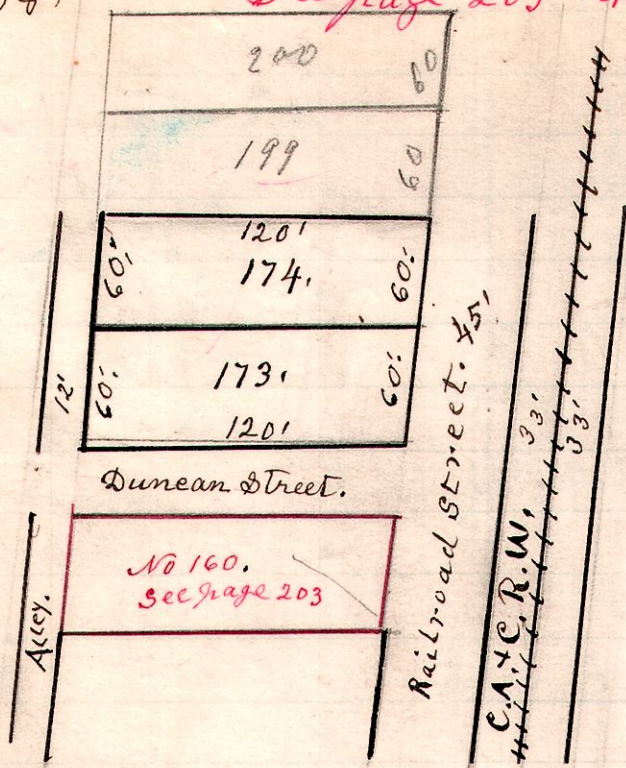 See page 203
200
60
199
60
120'
60'
174.
60'
173.
60'
60'
120'
12'
Duncan Street.
No 160.
See page 203
Alley.
Railroad Street. 45'
33'
33'
C.A. & C. R.W.